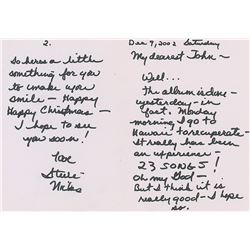 Dec 9, 2002 Saturday
My dearest John ~
Well...
The album is done -
yesterday - in
fact. Monday
morning I go to
Hawaii to recuperate -
It really has been
an experience -
23 SONGS!
Oh my God -
But I think it is
really good - I hope
so.
2.
So heres a little
something for you
to make you
smile - Happy
Happy Christmas -
I hope to see
you soon!
Love
Stevie
Nicks